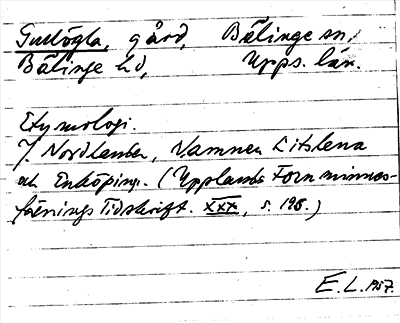 Gullögla, gård, Bälinge sn,
Bälinge hd, Upps. län.
Etymologi.
J. Nordlander, Namnen Litslena
och Enköping. (Upplands Fornminnes-
förenings Tidskrift. XXX, s. 198.)
E. L. 1957.